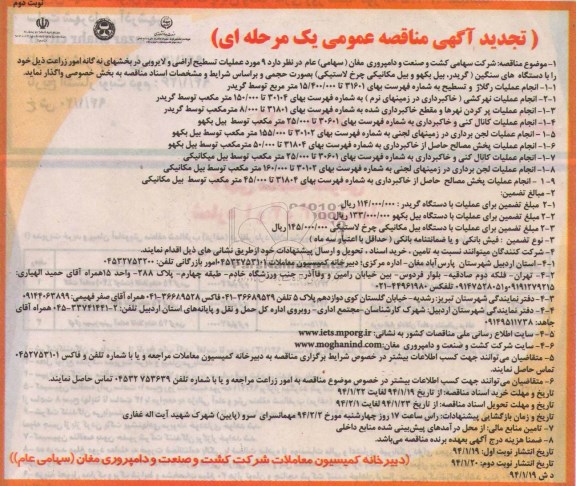 نوبت دوم
( تجدید آگهی مناقصه عمومی یک مرحله ای)
۱-موضوع مناقصه: شرکت سهامی کشت و صنعت و دامپروری مغان (سهامی عام) در نظر دارد ۹ مورد عملیات تسطیح اراضی و لایروبی در بخشهای نه گانه امور زراعت ذیل خود
را با دستگاه های سنگین ( گریدر، بیل بکهو و بیل مکانیکی چرخ لاستیکی) بصورت حجمی و براساس شرایط و مشخصات اسناد مناقصه به بخش خصوصی واگذار نماید.
۱-۱- انجام عملیات رگلاژ و تسطیح به شماره فهرست بهای ۳۱۶۰۱ تا ۱۵/۴۰۰/۰۰۰ متر مربع توسط گریدر
۱-۲- انجام عملیات نهرکشی ( خاکبرداری در زمینهای نرم ) به شماره فهرست بهای ۳۰۱۰۴ تا ۱۵۰/۰۰۰ متر مکعب توسط گریدر
۱-۳- انجام عملیات پر کردن نهرها و مقطع خاکبرداری شده به شماره فهرست بهای ۳۱۸۰۱ تا ۸/۰۰۰ متر مکعب توسط گریدر
۱-۴- انجام عملیات کانال کنی و خاکبرداری به شماره فهرست بهای ۳۰۶۰۱ تا ۲۵/۰۰۰ متر مکعب توسط بیل بکهو
۱-۵- انجام عملیات لجن برداری در زمینهای لجنی به شماره فهرست بهای ۳۰۱۰۲ تا ۱۵۵/۰۰۰ متر مکعب توسط بیل بکهو
۱-۶- انجام عملیات پخش مصالح حاصل از خاکبرداری به شماره فهرست بهای ۳۱۸۰۴ تا ۵۰/۰۰۰ متر مکعب توسط بیل بکهو
۱-۷- انجام عملیات کانال کنی و خاکبرداری به شماره فهرست بهای ۳۰۶۰۱ تا ۲۵/۰۰۰ متر مکعب توسط بیل میکانیکی
۱-۸- انجام عملیات لجن برداری در زمینهای لجنی به شماره فهرست بهای ۳۰۱۰۲ تا ۱۶۰/۰۰۰ متر مکعب توسط بیل مکانیکی
۱-۹ - انجام عملیات پخش مصالح حاصل از خاکبرداری به شماره فهرست بهای ۳۱۸۰۴ تا ۴۵/۰۰۰ متر مکعب توسط بیل مکانیکی
۲- مبالغ تضمین:
۲-۱ مبلغ تضمین برای عملیات با دستگاه گریدر : ۱۱۴/۰۰۰/۰۰۰ ریال
۲-۲ مبلغ تضمین برای عملیات با دستگاه بیل بکهو ۱۳۳/۰۰۰/۰۰۰ ریال
۲-۳ مبلغ تضمین برای عملیات با دستگاه بیل مکانیکی چرخ لاستیکی ۱۴۵/۰۰۰/۰۰۰ ریال
۳- نوع تضمین : فیش بانکی و یا ضمانتنامه بانکی ( حداقل با اعتبار سه ماه )
شرکت کنندگان میتوانند نسبت به تامین، خرید اسناد، تحویل و ارسال پیشنهادات خود از طریق نشانی های ذیل اقدام نمایند.
۴-۱- استان اردبیل شهرستان پارس آباد مغان - اداره مرکزی: دبیرخانه کمیسیون معاملات ۰۴۵۳۲۷۵۳۱۰۱ امور بازرگانی تلفن: ۰۴۵۳۲۷۵۳۲۰۰
۴-۲- تهران - فلکه دوم صادقیه- بلوار فردوس- بین خیابان رامین و وفاآذر- جنب ورزشگاه خادم- طبقه چهارم- پلاک ۲۸۸- واحد ۱۵ همراه آقای حمید الهیاری:
۰۹۱۹۱۲۷۹۲۱۵ و ۰۹۱۴۷۵۲۸۰۵۱ تلفکس ۴۴۹۶۱۹۸۰-۰۲۱
۴-۳- دفتر نمایندگی شهرستان تبریز: رشدیه- خیابان گلستان کوی دوازدهم پلاک ۵ تلفن ۳۶۶۸۹۵۲۹-۰۴۱ فاکس ۳۶۶۸۹۵۲۸-۰۴۱ همراه آقای صفرفهیمی: ۰۹۱۴۴۰۶۳۸۹۹
۴-۴- دفتر نمایندگی شهرستان اردبیل: شهرک کارشناسان -مجتمع اداری- روبروی اداره کل حمل و نقل و پایانه‌های استان اردبیل تلفن: ۲-۳۳۷۴۱۴۴۱-۰۴۵ همراه آقای
جاهد: ۰۹۱۴۹۵۱۱۷۳۸
۴-۵- سایت اطلاع رسانی ملی مناقصات کشور به نشانی: www.iets.mporg.ir
۴-۶- سایت شرکت کشت و صنعت و دامپروری مغان: www.moghanind.com
۵- متقاضیان می‌توانند جهت کسب اطلاعات بیشتر در خصوص شرایط برگزاری مناقصه به دبیرخانه کمیسیون معاملات مراجعه و یا با شماره تلفن و فاکس ۰۴۵۲۷۵۳۱۰۱
تماس حاصل نمایند.
۶- متقاضیان می‌توانند جهت کسب اطلاعات بیشتر در خصوص موضوع مناقصه به امور زراعت مراجعه و یا با شماره تلفن ۰۴۵۳۲۷۵۳۶۳۹ تماس حاصل نمایند.
تاریخ و مهلت خرید اسناد مناقصه: از تاریخ ۹۴/۱/۱۹ لغایت ۹۴/۱/۲۲
تاریخ و مهلت تحویل اسناد مناقصه: از تاریخ ۹۴/۱/۲۳ لغایت ۹۴/۲/۱
تاریخ و زمان بازگشایی پیشنهادات: راس ساعت ۱۷ روز چهارشنبه مورخ ۹۴/۲/۲ مهمانسرای سرو (پایین) شهرک شهید آیت اله غفاری
۷- تامین منابع مالی: از محل درآمدهای پیش‌بینی شده منابع داخلی
۸- ضمنا هزینه درج آگهی بعهده برنده مناقصه می‌باشد.
تاریخ انتشار نوبت اول: ۹۴/۱/۱۹
تاریخ انتشار نوبت دوم: ۹۴/۱/۲۰
د ش ۹۴/۱/۱۹
((دبیرخانه کمیسیون معاملات شرکت کشت و صنعت و دامپروری مغان (سهامی عام))